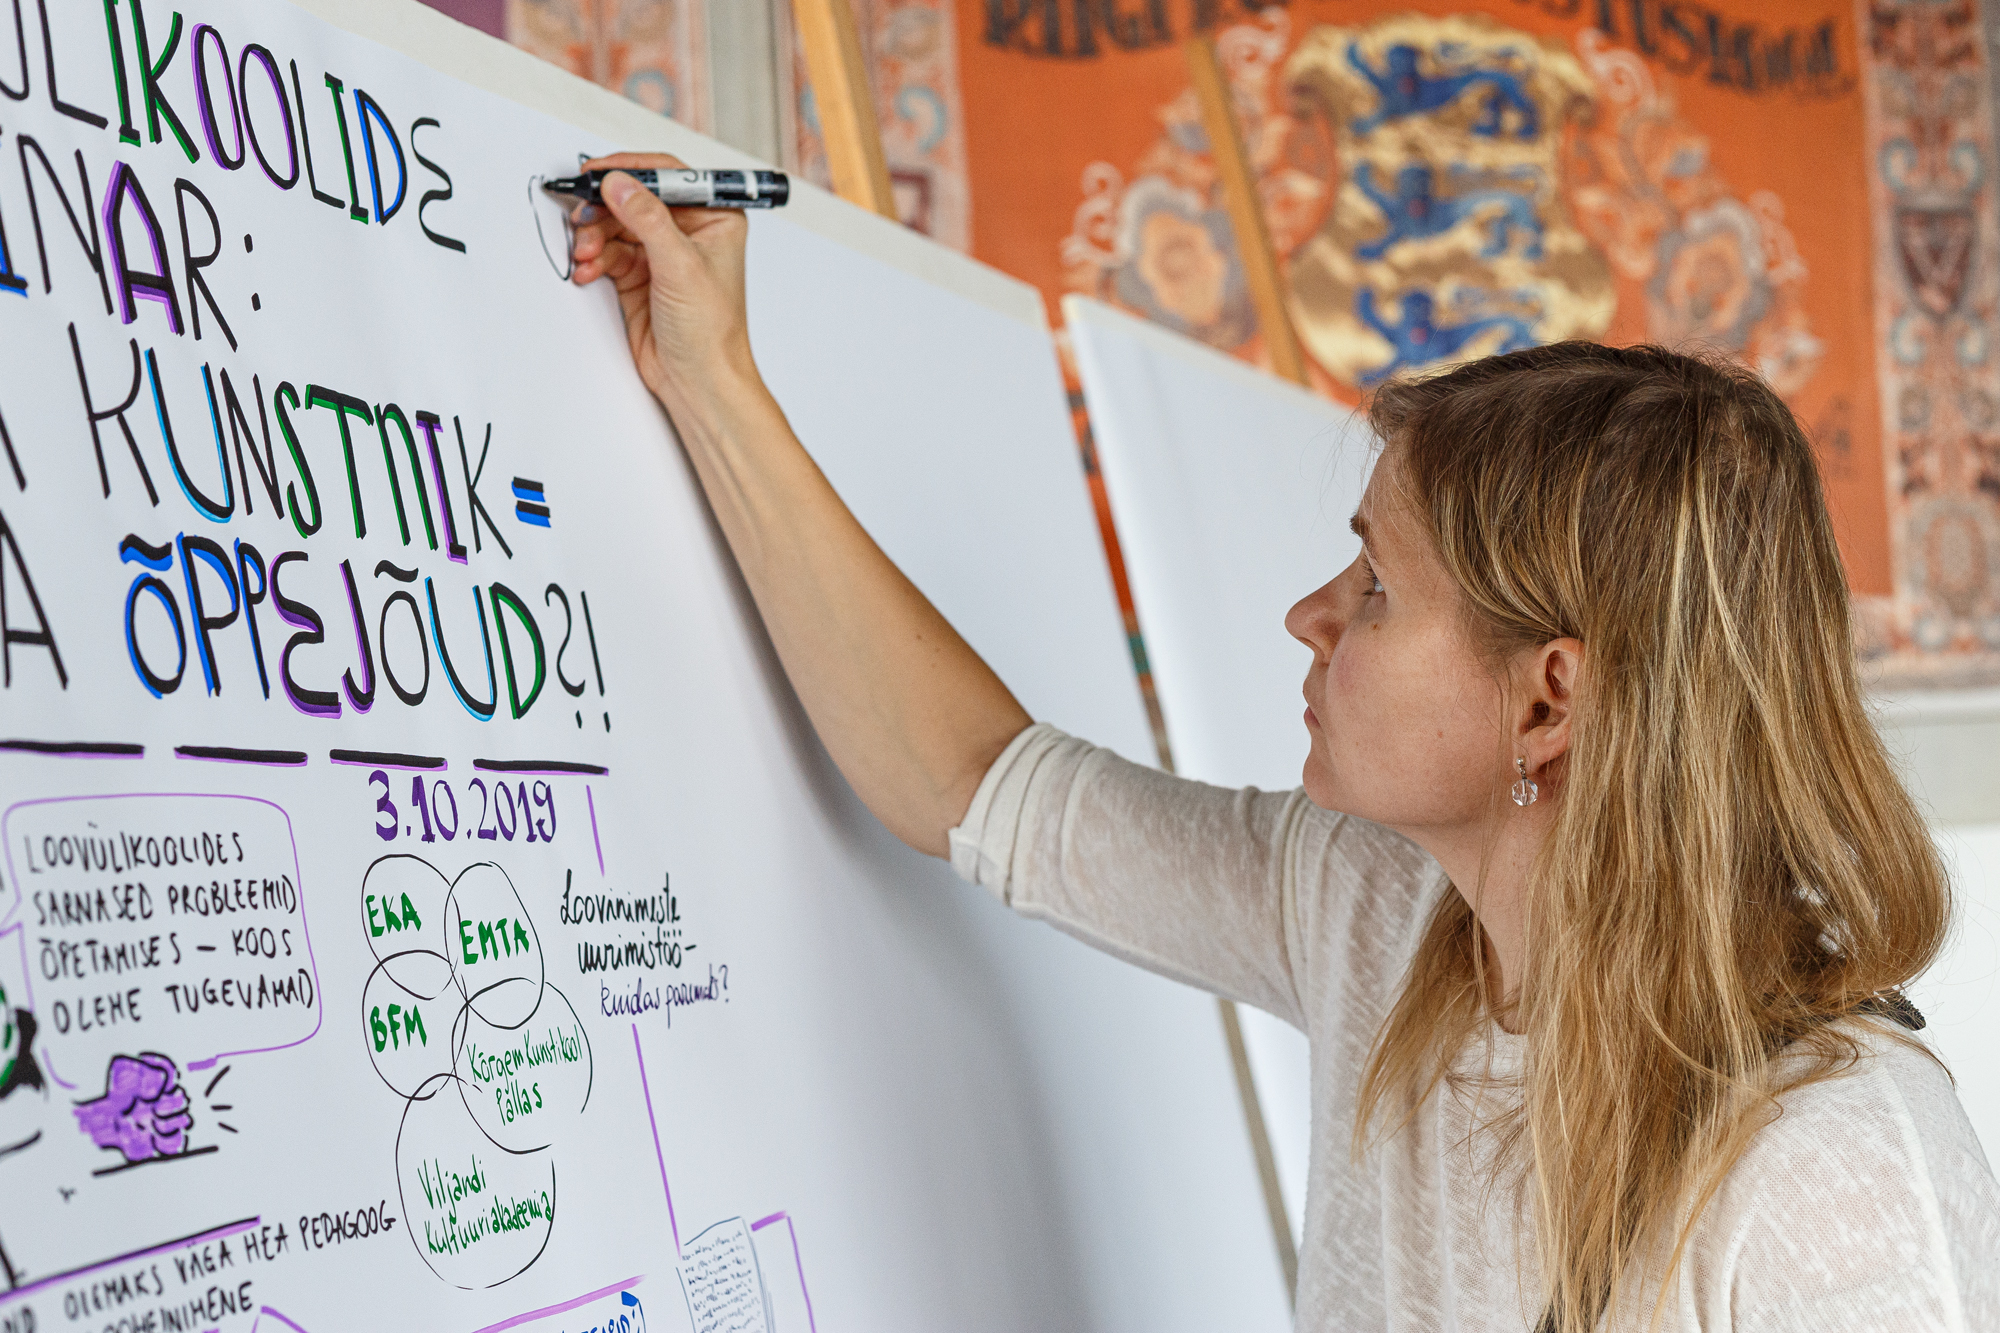 ÜLIKOOLIDE
INAR:
KUNSTNIK =
A ÕPPEJÕUD?!
3.10.2019
LOOVÜLIKOOLIDES
SARNASED PROBLEEMID
ÕPETAMISES – KOOS
OLEME TUGEVAMAD
EKA
EMTA
BFM
Kõrgem Kunstikool
Pallas
Viljandi
Kultuuriakadeemia
Loovinimeste
uurimistöö –
kuidas paremaks?
OLEMAKS VÄGA HEA PEDAGOOG